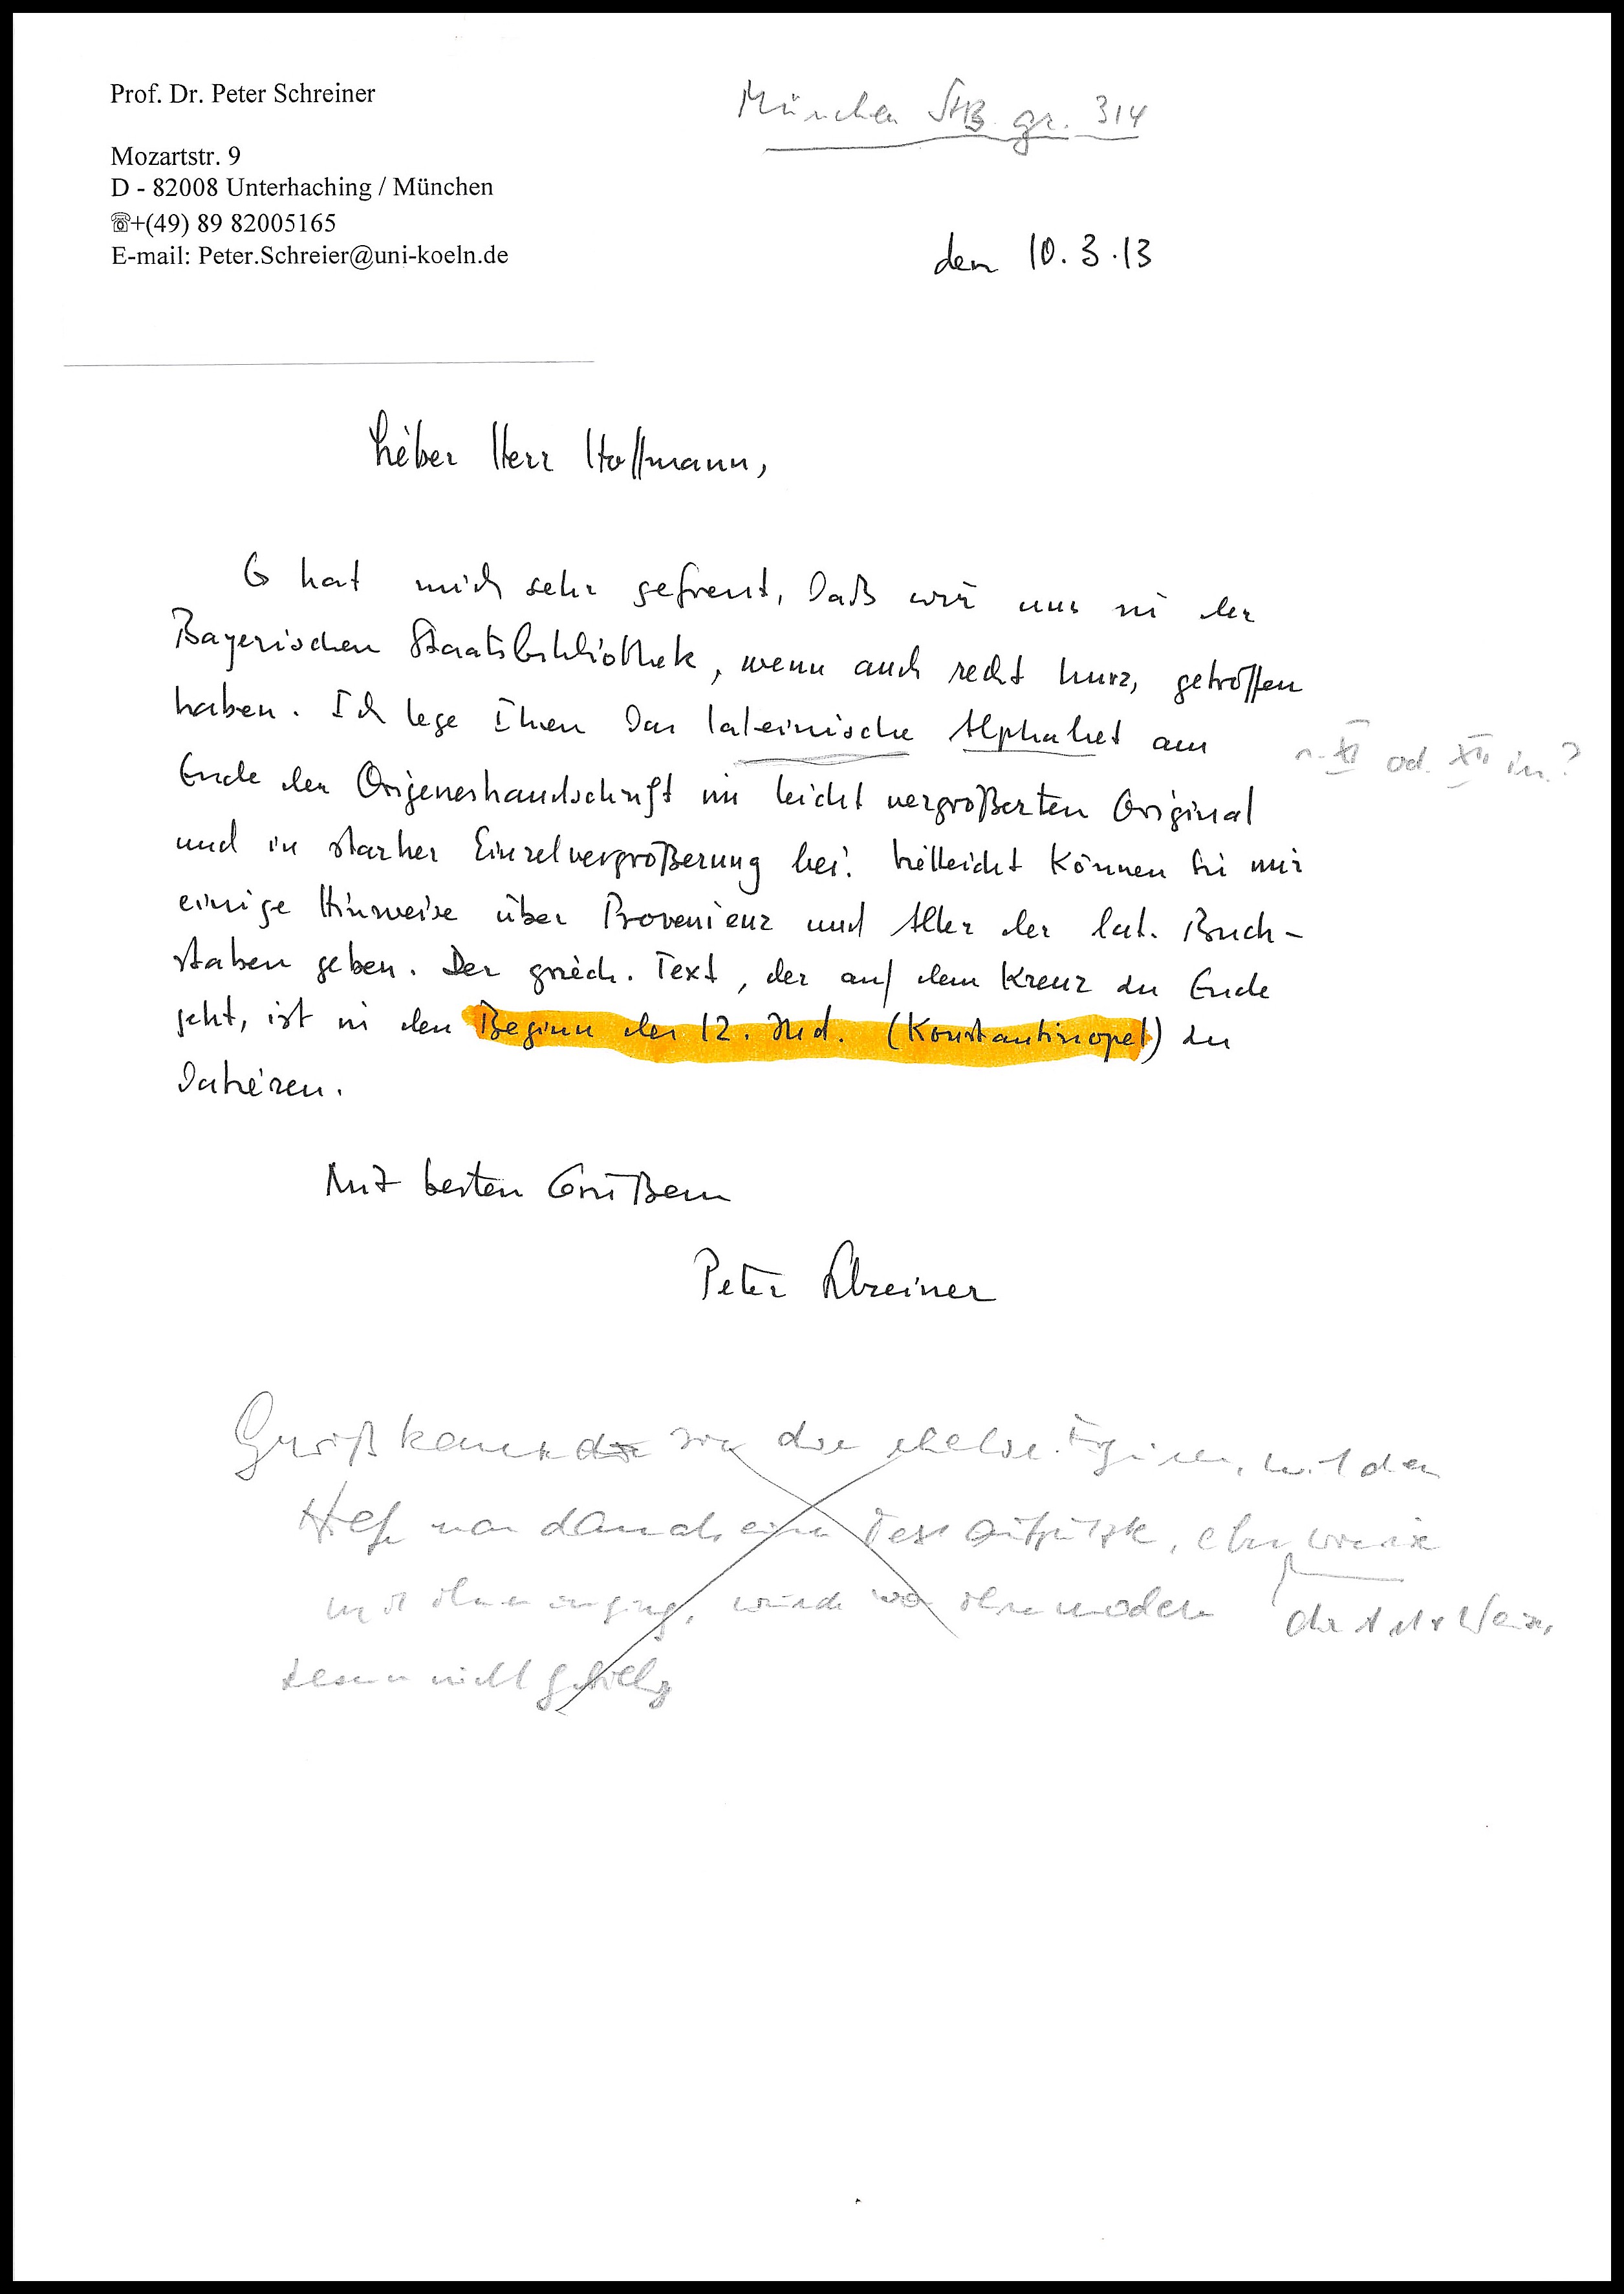 Prof. Dr. Peter Schreiner
München StB. gr. 314
Mozartstr. 9
D - 82008 Unterhaching / München
☏+(49) 89 82005165
E-mail: Peter.Schreier@uni-koeln.de
den 10.3.13
Lieber Herr Hoffmann,
Es hat mich sehr gefreut, daß wir uns in der
Bayerischen Staatsbibliothek, wenn auch recht kurz, getroffen
haben. Ich lege Ihnen das lateinische Alphabet am
XI od. XII in.?
Ende der Origeneshandschrift im leicht vergrößerten Original
und in starker Einzelvergrößerung bei. Vielleicht können Sie mir
einige Hinweise über Provenienz und Alter der lat. Buch-
staben geben. Der griech. Text, der auf dem Kreuz zu Ende
geht, ist in den Beginn des 12. Jhd. (Konstantinopel) zu
datieren.
Mit besten Grüßen
Peter Schreiner
Gewiß kann die
man danach
mit würde
nicht